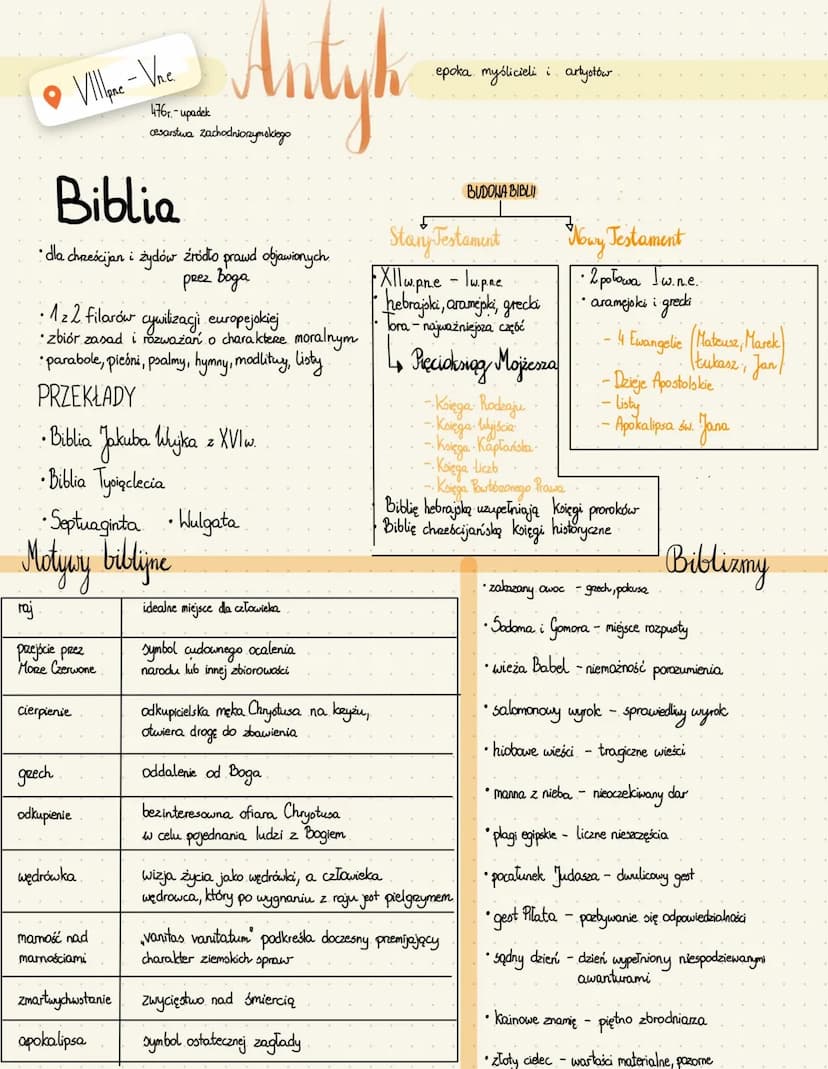 VIII p.n.e - V n.e.
Antyk
epoka myślicieli i artystów
476r. - upadek
cesarstwa zachodniorzymskiego
Biblia
• dla chrześcijan i żydów źródło prawd objawionych
przez Boga
• 1 z 2 filarów cywilizacji europejskiej
• zbiór zasad i rozważań o charakterze moralnym
• parabole, pieśni, psalmy, hymny, modlitwy, listy
PRZEKŁADY
• Biblia Jakuba Wujka z XVI w.
• Biblia Tysiąclecia
• Septuaginta • Wulgata
BUDOWA BIBLII
Stary Testament
• XII w.p.n.e - I w.p.n.e
• hebrajski, aramejski, grecki
• Tora - najważniejsza część
↳ Pięcioksiąg Mojżesza
- Księga Rodzaju
- Księga Wyjścia
- Księga Kapłańska
- Księga Liczb
- Księga Powtórzonego Prawa
Biblię hebrajską uzupełniają księgi proroków
• Biblię chrześcijańską księgi historyczne
Nowy Testament
• 2 połowa I w.n.e.
• aramejski i grecki
- 4 Ewangelie (Mateusz, Marek
Łukasz, Jan)
- Dzieje Apostolskie
- Listy
- Apokalipsa św. Jana
Motywy biblijne
raj
idealne miejsce dla człowieka
przejście przez
Morze Czerwone
symbol cudownego ocalenia
narodu lub innej zbiorowości
cierpienie
odkupicielska męka Chrystusa na krzyżu,
otwiera drogę do zbawienia
grzech
oddalenie od Boga
odkupienie
bezinteresowna ofiara Chrystusa
w celu pojednania ludzi z Bogiem
wędrówka
wizja życia jako wędrówki, a człowieka
wędrowca, który po wygnaniu z raju jest pielgrzymem
marność nad
marnościami
„vanitas vanitatum" podkreśla doczesny przemijający
charakter ziemskich spraw
zmartwychwstanie
zwycięstwo nad śmiercią
apokalipsa
symbol ostatecznej zagłady
Biblizmy
• zakazany owoc - grzech, pokusa
• Sodoma i Gomora - miejsce rozpusty
• wieża Babel - niemożność porozumienia
• salomonowy wyrok - sprawiedliwy wyrok
• hiobowe wieści - tragiczne wieści
• manna z nieba - nieoczekiwany dar
• plagi egipskie - liczne nieszczęścia
• pocałunek Judasza - dwulicowy gest
• gest Piłata - pozbywanie się odpowiedzialności
• sądny dzień - dzień wypełniony niespodziewanymi
awanturami
• kainowe znamię - piętno zbrodniarza
• złoty cielec - wartości materialne, pozorne